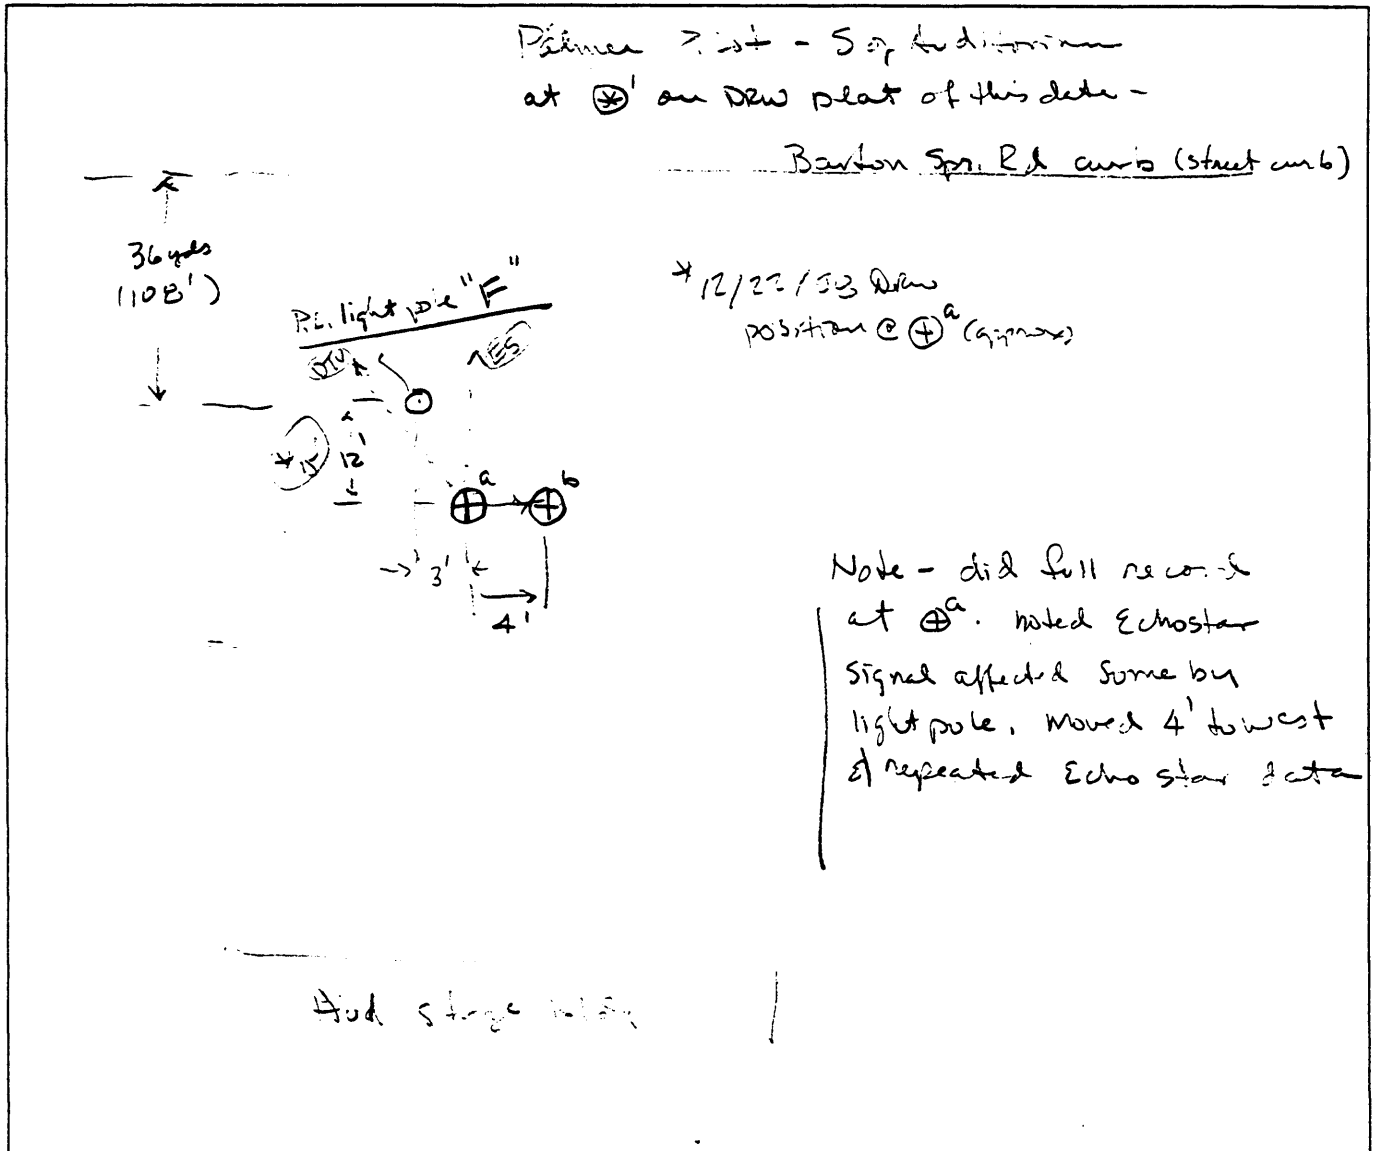 Palmer - S of Auditorium
at ⊛' on DRW plat of this date -
Barton Spr. Rd curb (street curb)
36 yds
(108')
P.L. light pole "F"
DTV
ES
*12/22/98 DRW
position @ ⊕a (approx)
* 15'
12'
a
b
3'
4'
Note - did full record
at ⊕a. noted Echostar
signal affected some by
light pole. Moved 4' to west
& repeated Echostar data
Aud stage